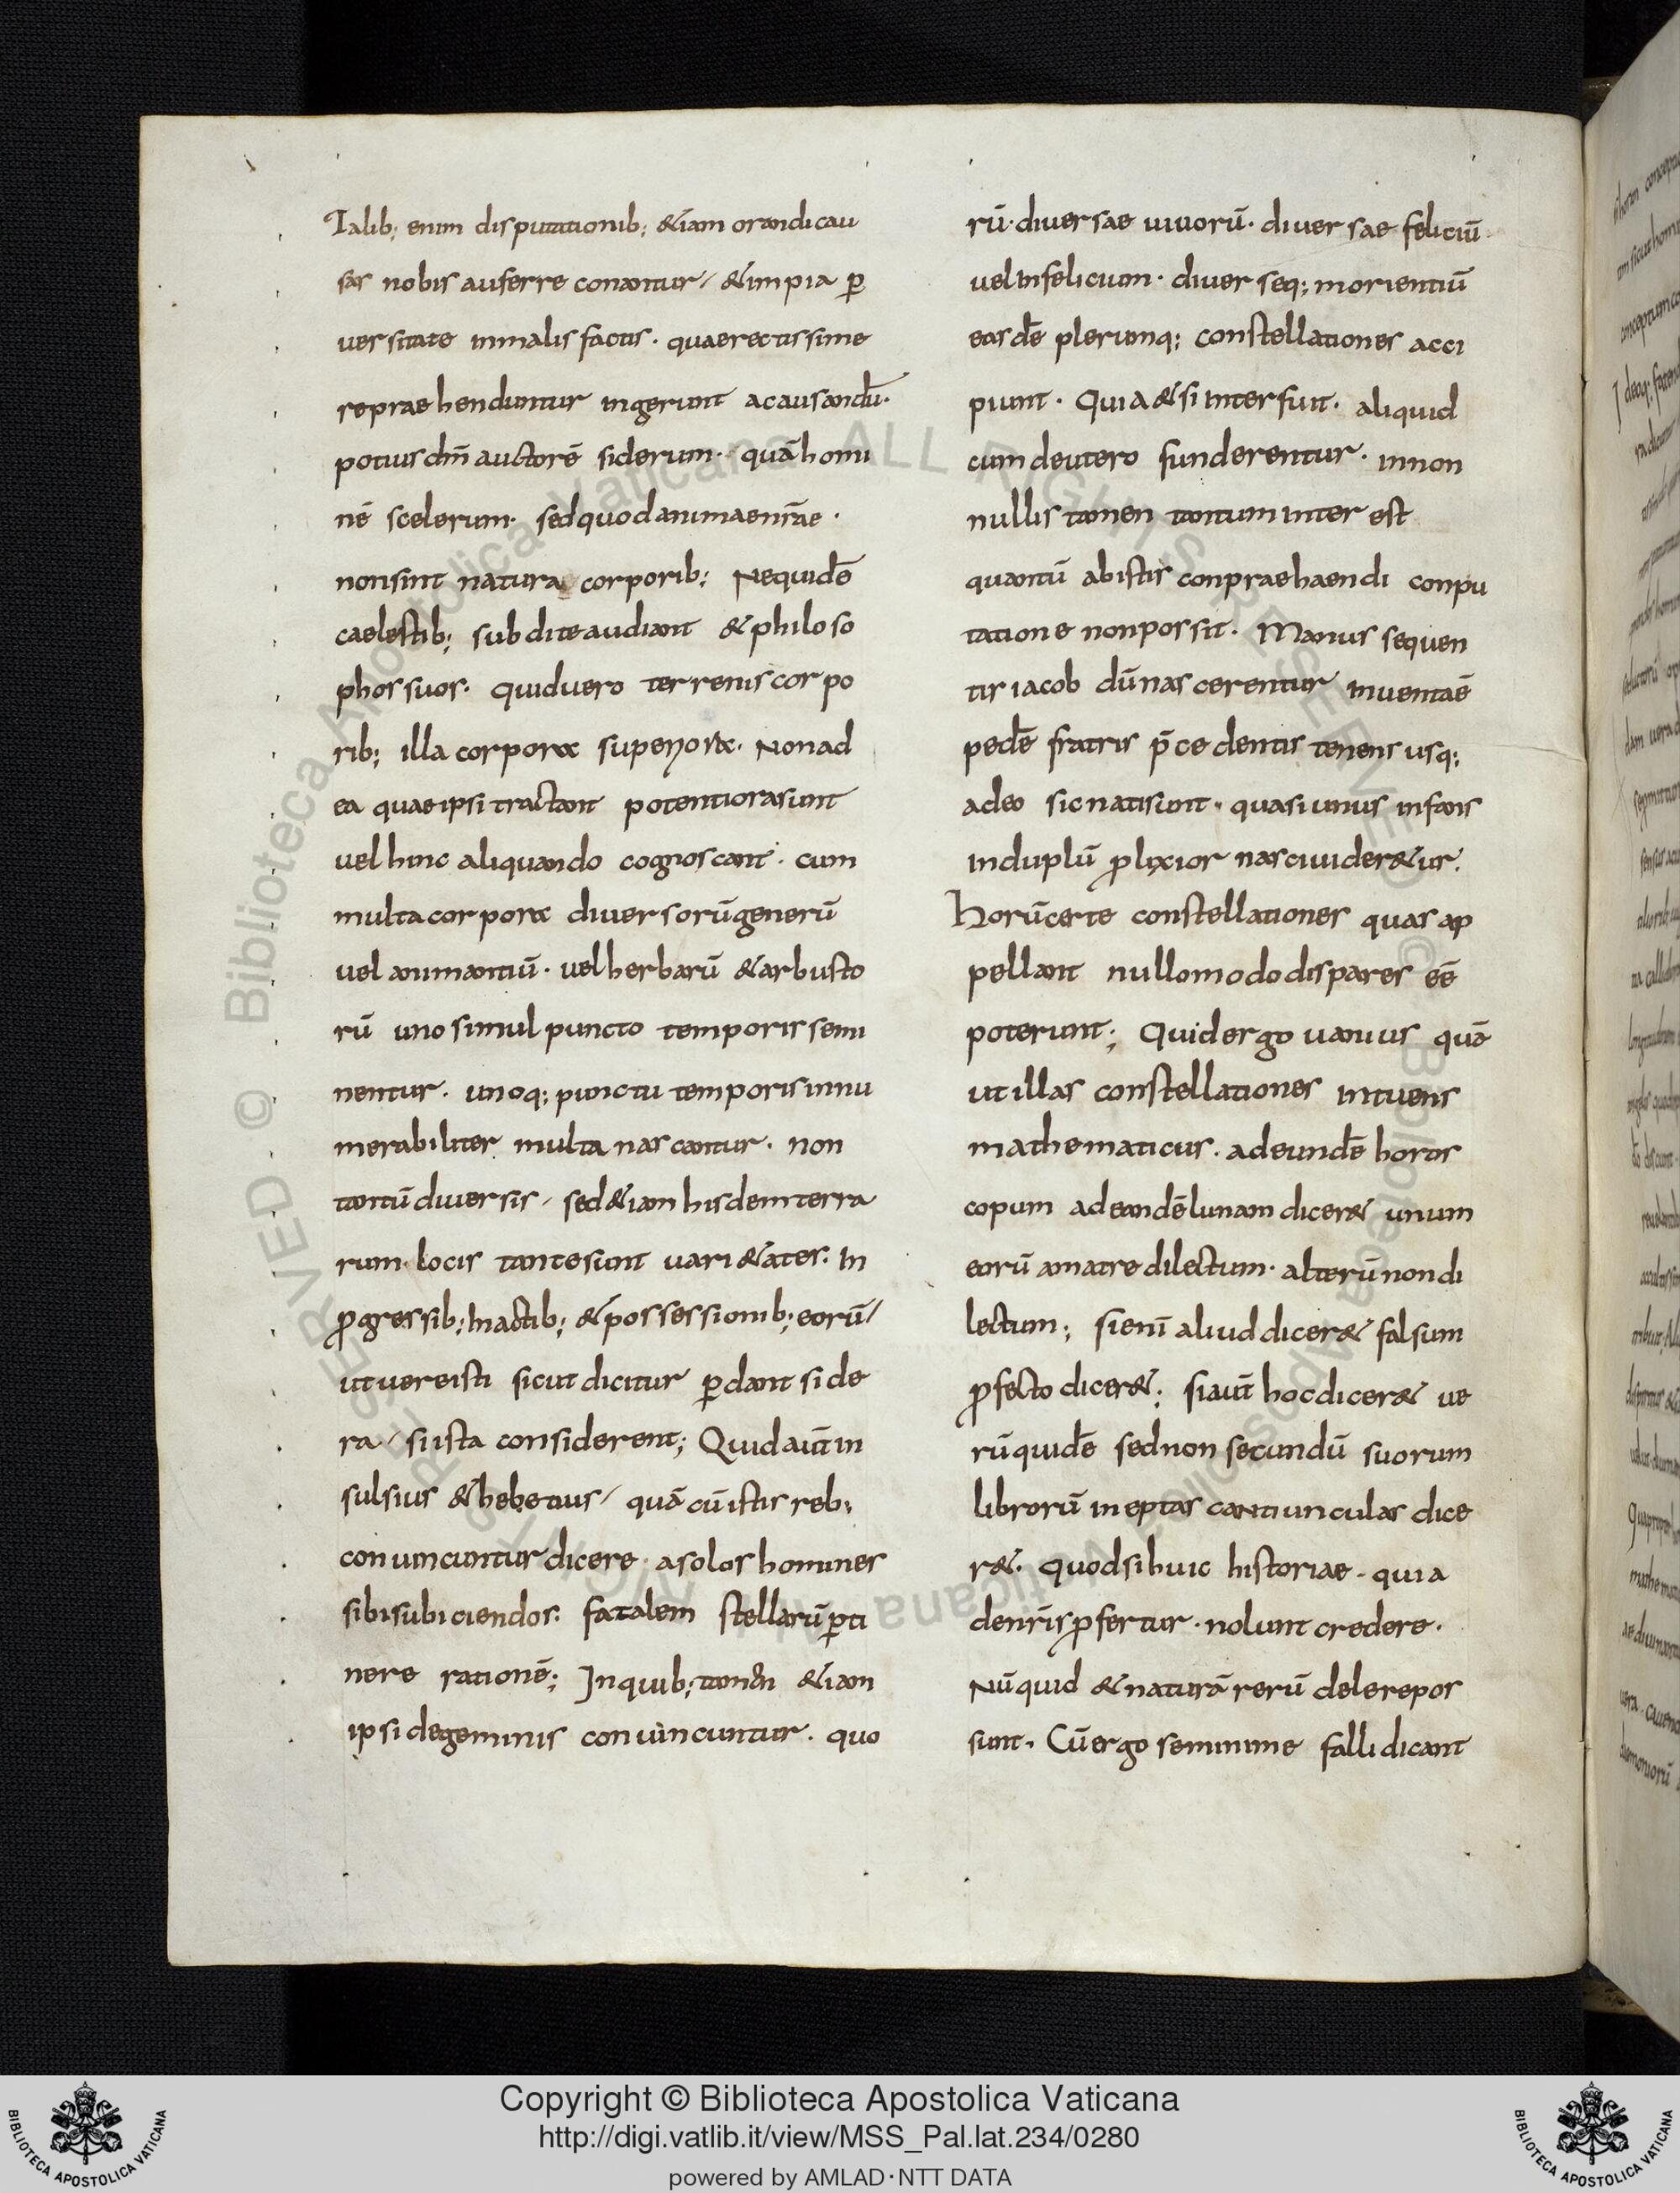 Talib; enim disputationib; &iam orandi cau
sas nobis auferre conantur, & impia ꝑ
versitate in malis factis · quae rectissime
reprae henduntur ingerunt ac ausandū·
potius dm̄ auctorē siderum · quā homi
nē scelerum · sed quod animae nr̄ae ·
non sint natura corporib; Nequidē
caelestib; subdite audiant & philoso
phos suos · quid vero terrenis corpo
rib; illa corpora superiora · Non ad
ea quae ipsi tractant potentiora sunt
vel hinc aliquando cognoscant · cum
multa corpora diversorū generū
vel animantiū · vel herbarū & arbusto
rū uno simul puncto temporis semi
nentur · unoq; punctu temporis innu
merabiliter multa nascantur · non
tantū diversis, sed &iam hisdem terra
rum locis tante sunt vari&ates · In
ꝓgressib; In actib; & possessionib; eorū,
ut vere isti sicut dicitur ꝑdant side
ra, si ista considerent; Quid aut̄ in
sulsius & hebetius, quā cū istis reb;
convincuntur dicere · a solos homines
sibi subiciendos · fatalem stellarū ꝑti
nere rationē; In quib; tamen &iam
ipsi de geminis convincuntur · quo
rū · diversae vivorū · diversae feliciū
vel infelicium · diverseq; morientiū
easdē plerumq; constellationes acci
piunt · Quia & si interfuit · aliquid
cum deutero funderentur · in non
nullis tamen tantum inter est
quantū ab istis conpraehaendi conpu
tatione non possit · Manus sequen
tis iacob dū nascerentur inventāē
pedē fratris p̄cedentis tenens usq;
adeo sic nati sunt · quasi unus infans
in duplū ꝓlixior nasci vider&ur ·
Horū certe constellationes quas ap
pellant nullo modo dispares eē
poterunt; Quid ergo vanius quā
ut illas constellationes intuens
mathematicus · ad eundē horos
copum ad eandē lunam dicer& unum
eorū a matre dilectum · alterū non di
lectum; si enī aliud dicer& falsum
ꝓfecto dicer&; si aut̄ hoc dicer& ve
rū quidē sed non secundū suorum
librorū ineptas cantiunculas dice
r& · quod si huic historiae · quia
de nr̄is ꝓfertur · nolunt credere ·
Nūquid & naturā rerū delere pos
sunt · Cū ergo se minime falli dicant
Copyright © Biblioteca Apostolica Vaticana
http://digi.vatlib.it/view/MSS_Pal.lat.234/0280
powered by AMLAD·NTT DATA
BIBLIOTECA APOSTOLICA VATICANA
BIBLIOTECA APOSTOLICA VATICANA